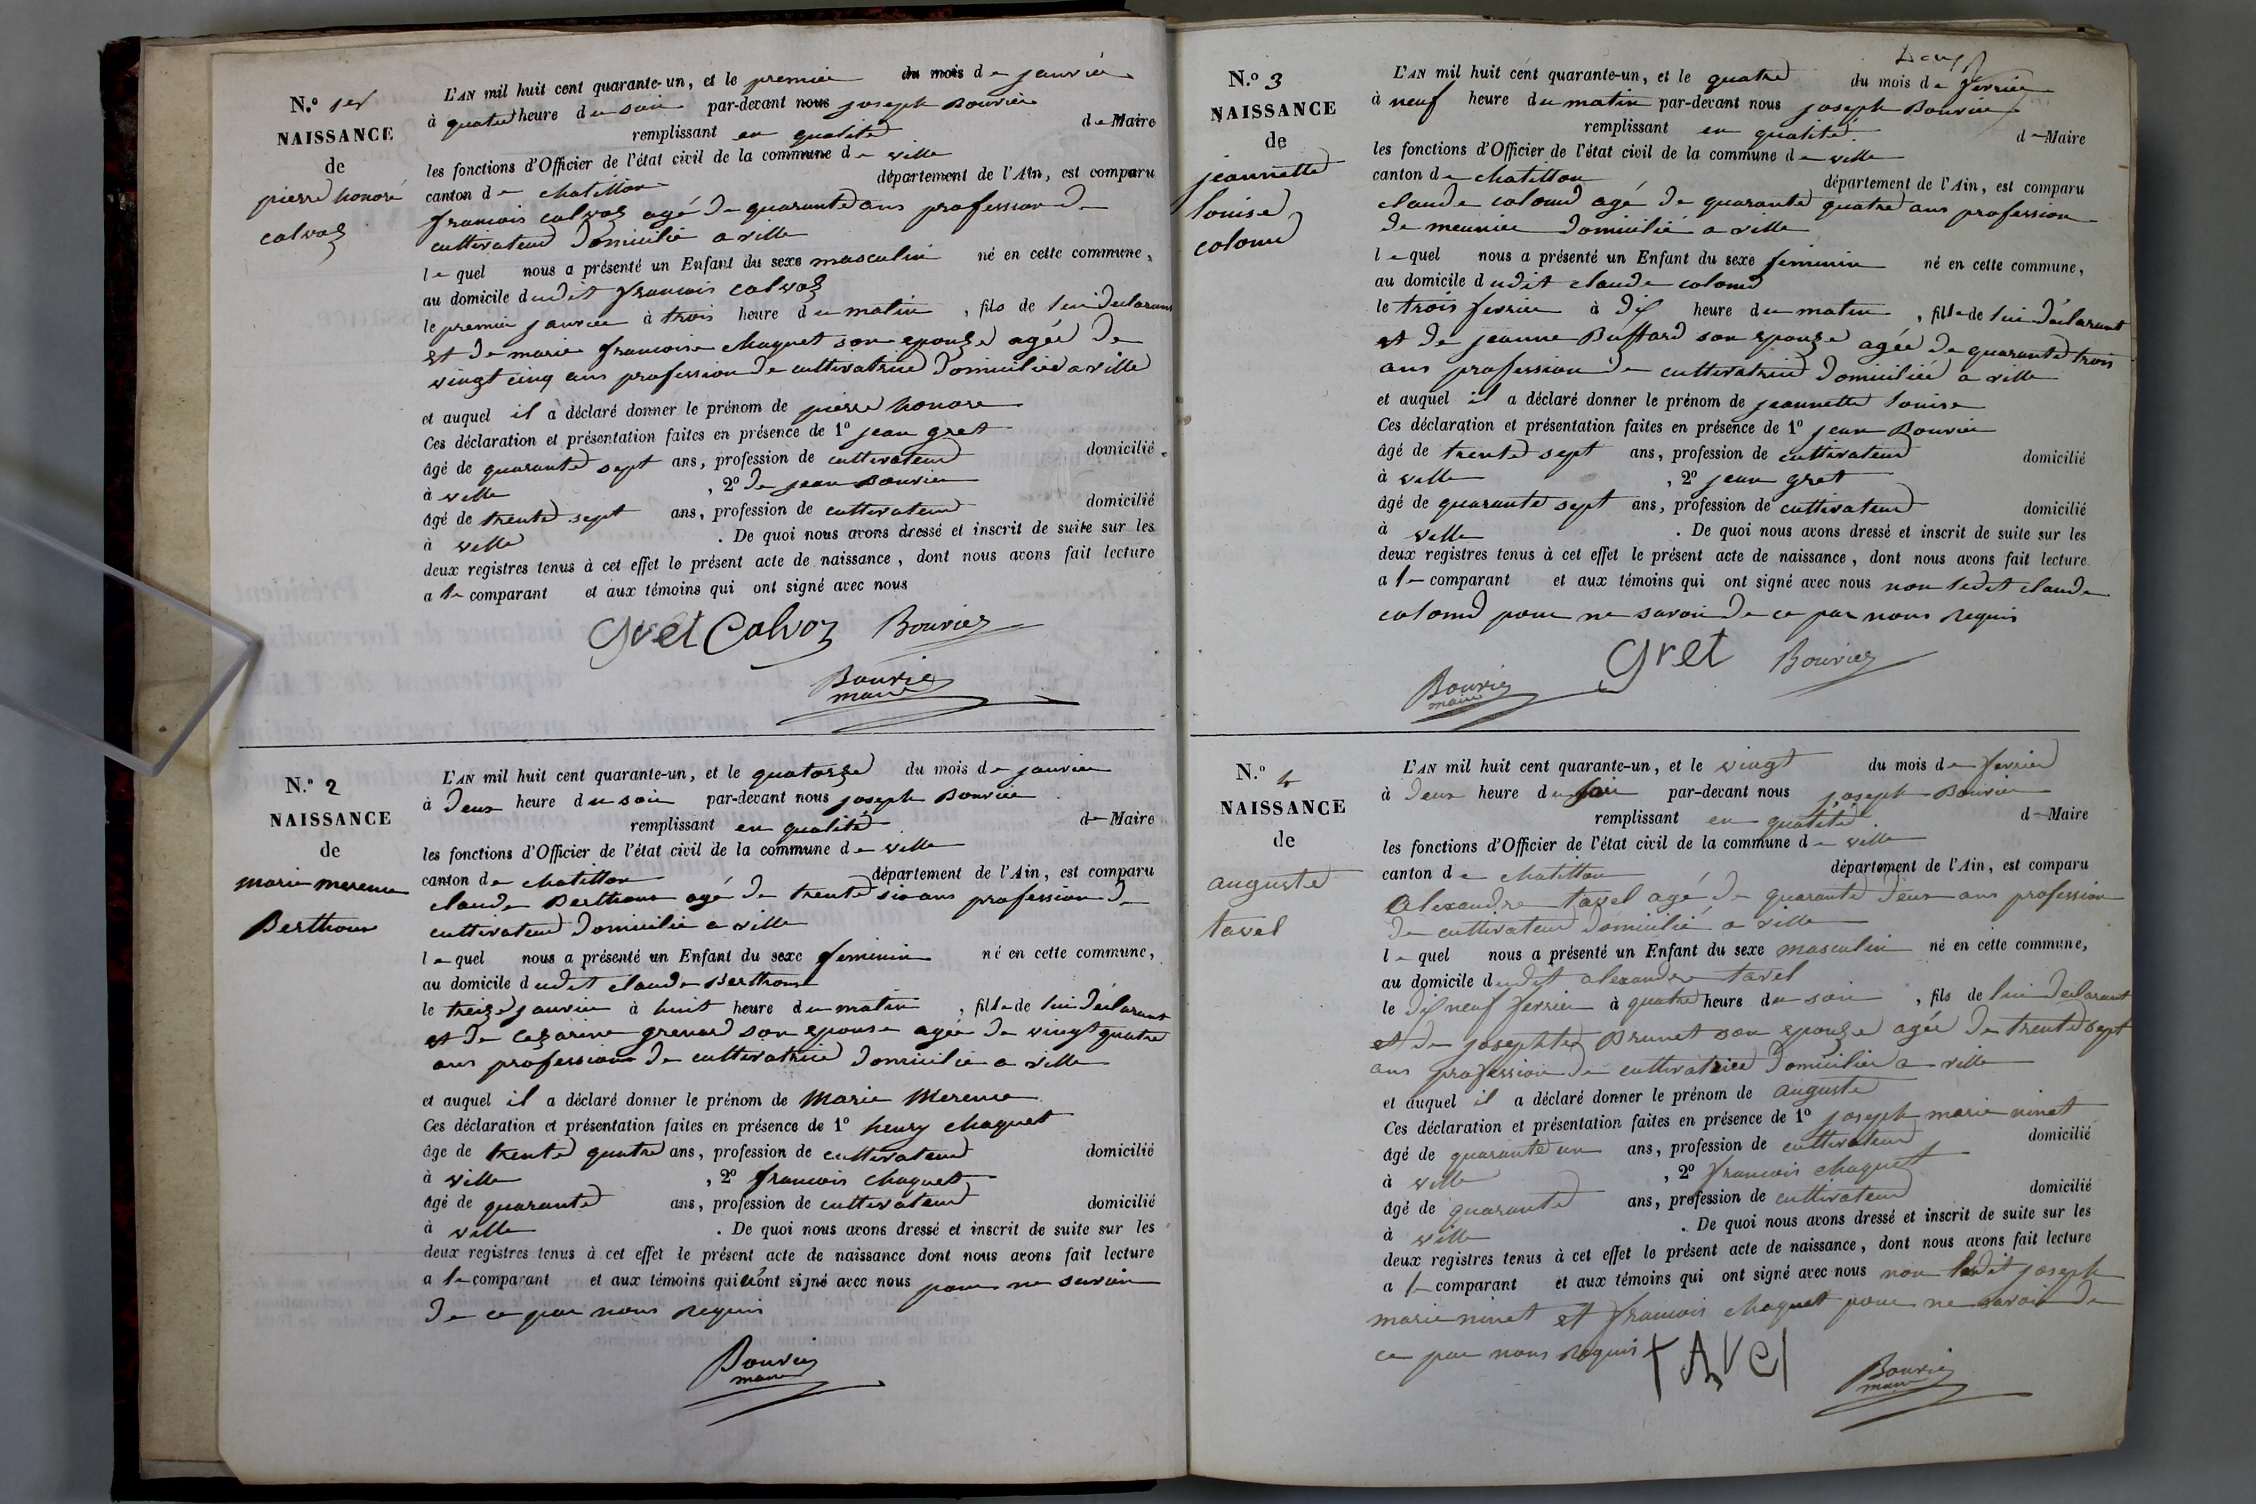 N.º 1er
NAISSANCE
de
pierre honoré
calvoz
L'AN mil huit cent quarante-un, et le premier du mois de janvier
à quatre heure du soir par-devant nous joseph Bouvier
remplissant en qualité de Maire
les fonctions d'Officier de l'état civil de la commune de ville
canton de chatillon département de l'Ain, est comparu
francois calvoz agé de quarante ans profession de
cultivateur domicilié a ville
le quel nous a présenté un Enfant du sexe masculin né en cette commune,
au domicile dudit francois calvoz
le premier janvier à trois heure du matin, fils de lui déclarant
et de marie francoise chaquet son epouze agée de
vingt cinq ans profession de cultivatrice domiciliée a ville
et auquel il a déclaré donner le prénom de pierre honore
Ces déclaration et présentation faites en présence de 1º jean gret
âgé de quarante sept ans, profession de cultivateur domicilié
à ville, 2º de jean Bouvier
âgé de trente sept ans, profession de cultivateur domicilié
à ville. De quoi nous avons dressé et inscrit de suite sur les
deux registres tenus à cet effet le présent acte de naissance, dont nous avons fait lecture
a le comparant et aux témoins qui ont signé avec nous
Gret Calvoz Bouvier
Bouvier
maire
N.º 2
NAISSANCE
de
marie merence
Berthoux
L'AN mil huit cent quarante-un, et le quatorze du mois de janvier
à deux heure du soir par-devant nous joseph Bouvier
remplissant en qualité de Maire
les fonctions d'Officier de l'état civil de la commune de ville
canton de chatillon département de l'Ain, est comparu
claude Berthoux agé de trente six ans profession de
cultivateur domicilié a ville
le quel nous a présenté un Enfant du sexe feminin né en cette commune,
au domicile dudit claude Berthoux
le treize janvier à huit heure du matin, fille de lui déclarant
et de cezarine grenard son epouse agée de vingt quatre
ans profession de cultivatrice domicilié a ville
et auquel il a déclaré donner le prénom de Marie Merence
Ces déclaration et présentation faites en présence de 1º henry chaquet
âge de trente quatre ans, profession de cultivateur domicilié
à ville, 2º francois chaquet
âgé de quarante ans, profession de cultivateur domicilié
à ville. De quoi nous avons dressé et inscrit de suite sur les
deux registres tenus à cet effet le présent acte de naissance dont nous avons fait lecture
a le comparant et aux témoins qui ont signé avec nous pour ne savoir
de ce par nous requis
Bouvier
maire
N.º 3
NAISSANCE
de
jeannette
louise
colomd
L'AN mil huit cent quarante-un, et le quatre du mois de fevrier
à neuf heure du matin par-devant nous joseph Bouvier
remplissant en qualité de Maire
les fonctions d'Officier de l'état civil de la commune de ville
canton de chatillon département de l'Ain, est comparu
claude colomd agé de quarante quatre ans profession
de meunier domicilié a ville
le quel nous a présenté un Enfant du sexe feminin né en cette commune,
au domicile dudit claude colomd
le trois fevrier à dix heure du matin, fille de lui déclarant
et de jeanne Buffard son epouze agée de quarante trois
ans profession de cultivatrice domiciliée a ville
et auquel il a déclaré donner le prénom de jeannette louise
Ces déclaration et présentation faites en présence de 1º jean Bouvier
âgé de trente sept ans, profession de cultivateur domicilié
à ville, 2º jean gret
âgé de quarante sept ans, profession de cultivateur domicilié
à ville. De quoi nous avons dressé et inscrit de suite sur les
deux registres tenus à cet effet le présent acte de naissance, dont nous avons fait lecture
a le comparant et aux témoins qui ont signé avec nous non ledit claude
colomd pour ne savoir de ce par nous requis
Gret Bouvier
Bouvier
maire
N.º 4
NAISSANCE
de
auguste
tavel
L'AN mil huit cent quarante-un, et le vingt du mois de fevrier
à deux heure du soir par-devant nous joseph Bouvier
remplissant en qualité de Maire
les fonctions d'Officier de l'état civil de la commune de ville
canton de chatillon département de l'Ain, est comparu
alexandre tavel agé de quarante deux ans profession
de cultivateur domicilié a ville
le quel nous a présenté un Enfant du sexe masculin né en cette commune,
au domicile dudit alexandre tavel
le dix neuf fevrier à quatre heure du soir, fils de lui déclarant
et de josephte Brunet son epouze agée de trente sept
ans profession de cultivatrice domicilier a ville
et auquel il a déclaré donner le prénom de auguste
Ces déclaration et présentation faites en présence de 1º joseph marie ninet
âgé de quarante un ans, profession de cultivateur domicilié
à ville, 2º francois chaquet
âgé de quarante ans, profession de cultivateur domicilié
à ville. De quoi nous avons dressé et inscrit de suite sur les
deux registres tenus à cet effet le présent acte de naissance, dont nous avons fait lecture
a le comparant et aux témoins qui ont signé avec nous non ledit joseph
marie ninet et francois chaquet pour ne savoir de
ce par nous requis
tAVel
Bouvier
maire